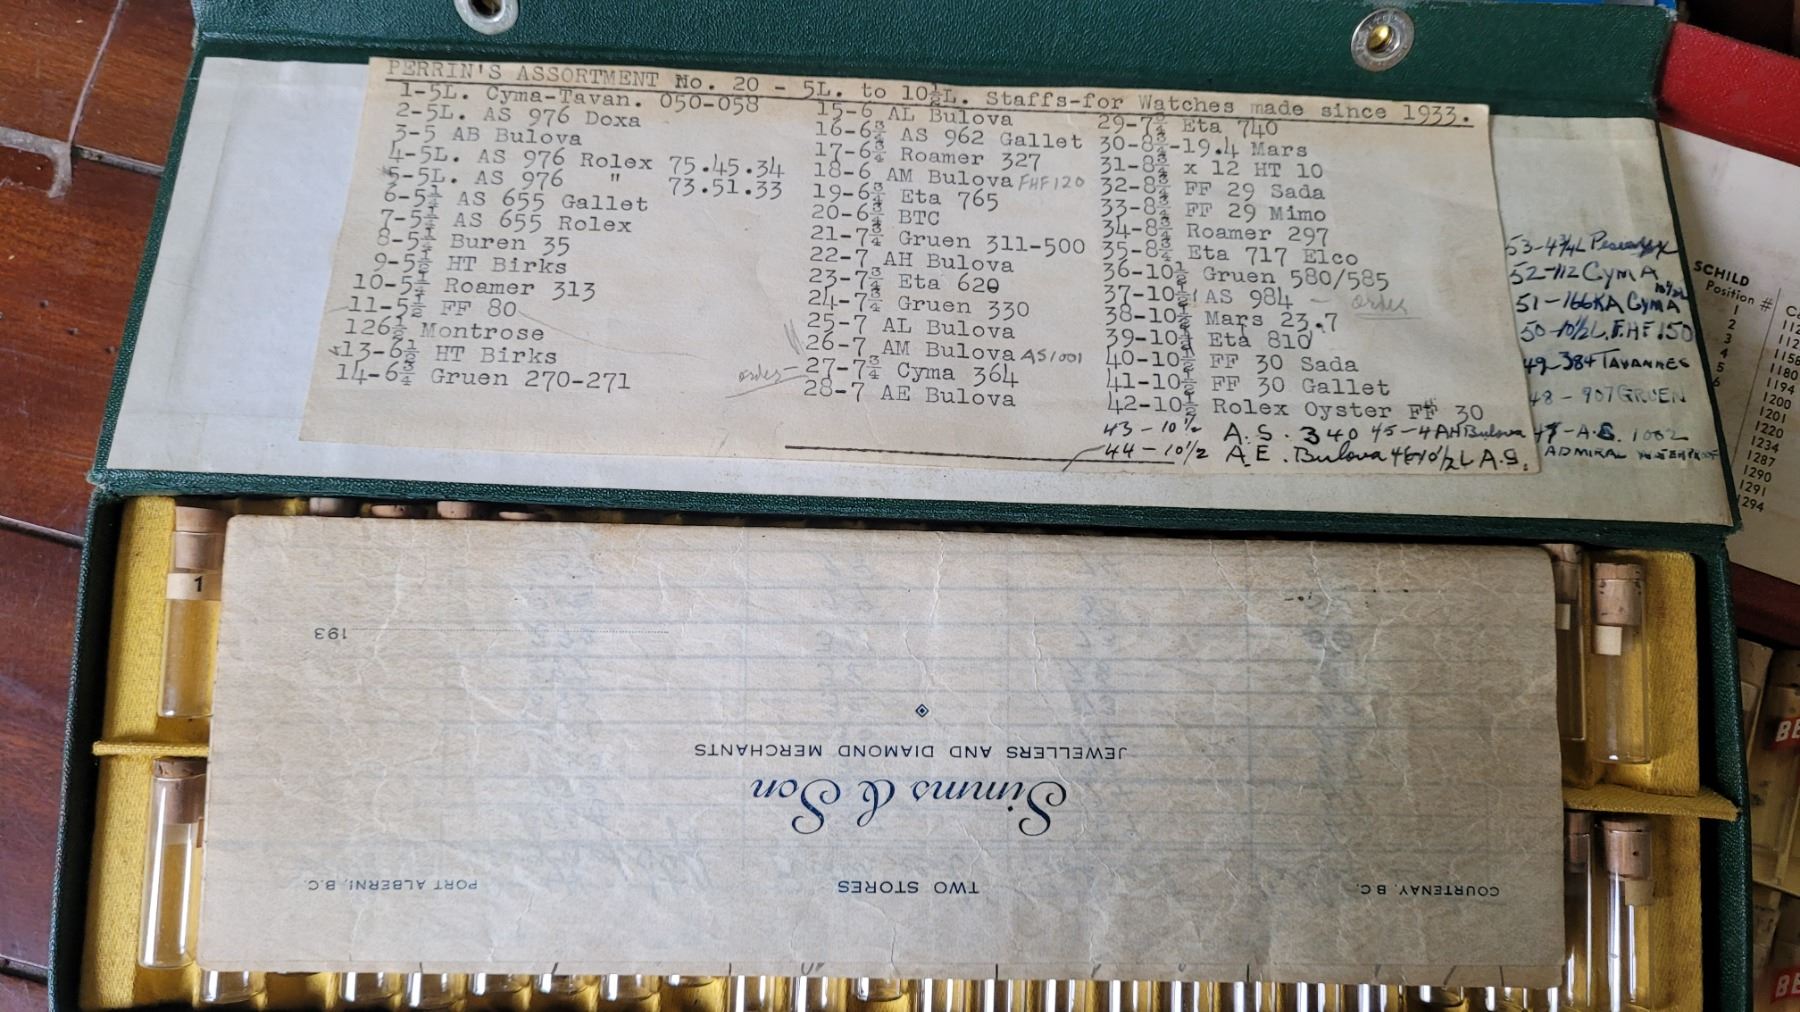 PERRIN'S ASSORTMENT No. 20 - 5L. to 10½L. Staffs-for Watches made since 1933.
1-5L. Cyma-Tavan. 050-058
2-5L. AS 976 Doxa
3-5 AB Bulova
4-5L. AS 976 Rolex 75.45.34
5-5L. AS 976 " 73.51.33
6-5¼ AS 655 Gallet
7-5¼ AS 655 Rolex
8-5¼ Buren 35
9-5½ HT Birks
10-5¼ Roamer 313
11-5½ FF 80
126½ Montrose
13-6½ HT Birks
14-6¾ Gruen 270-271
15-6 AL Bulova
16-6¾ AS 962 Gallet
17-6¾ Roamer 327
18-6 AM Bulova FHF120
19-6¾ Eta 765
20-6¾ BTC
21-7¾ Gruen 311-500
22-7 AH Bulova
23-7¾ Eta 620
24-7¾ Gruen 330
25-7 AL Bulova
26-7 AM Bulova AS1001
order- 27-7¾ Cyma 364
28-7 AE Bulova
29-7¾ Eta 740
30-8¾-19.4 Mars
31-8¾ x 12 HT 10
32-8¾ FF 29 Sada
33-8¾ FF 29 Mimo
34-8¾ Roamer 297
35-8¾ Eta 717 Elco
36-10½ Gruen 580/585
37-10½ AS 984 - order
38-10½ Mars 23.7
39-10½ Eta 810
40-10½ FF 30 Sada
41-10½ FF 30 Gallet
42-10½ Rolex Oyster FF 30
43-10½ A.S. 340 45-4AH Bulova
44-10½ A.E. Bulova 46 10½L A.S.
53-4¾L
52-112 CYMA
10½L
51-166KA CYMA
50-10½L. F.H.F. 150
49-384 TAVANNES
48-907 GRUEN
47-A.S. 1002
ADMIRAL WATERPROOF
SCHILD
Position #
1
2
3
4
5
6
1156
1180
1194
1200
1201
1220
1234
1287
1290
1291
1294
1
193
JEWELLERS AND DIAMOND MERCHANTS
Simms & Son
PORT ALBERNI, B.C. TWO STORES COURTENAY, B.C.
BE
BE